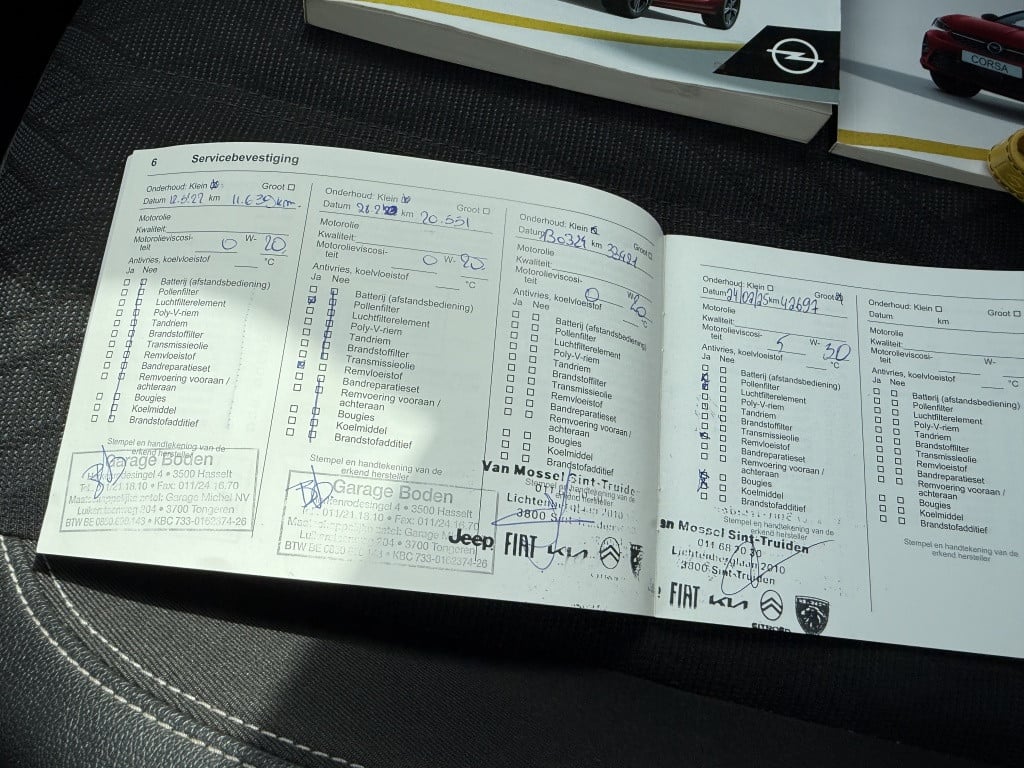 CORSA
6 Servicebevestiging
Onderhoud: Klein Groot
Datum 12.5/22 km 11.639 km.
Motorolie
Kwaliteit:
Motorolieviscosi-
teit 0 W- 20
Antivries, koelvloeistof °C
Ja Nee
Batterij (afstandsbediening)
Pollenfilter
Luchtfilterelement
Poly-V-riem
Tandriem
Brandstoffilter
Transmissieolie
Remvloeistof
Bandreparatieset
Remvoering vooraan /
achteraan
Bougies
Koelmiddel
Brandstofadditief
Stempel en handtekening van de
erkend hersteller
Garage Boden
3500 Hasselt
Tel. 011/24.18.10 • Fax: 011/24.16.70
Maatschappelijke zetel: Garage Michel NV
204 • 3700 Tongeren
BTW BE 0830.630.143 • KBC 733-0162374-26
Onderhoud: Klein Groot
Datum km 20.551
Motorolie
Kwaliteit:
Motorolieviscosi-
teit 0 W- 20
Antivries, koelvloeistof °C
Ja Nee
Batterij (afstandsbediening)
Pollenfilter
Luchtfilterelement
Poly-V-riem
Tandriem
Brandstoffilter
Transmissieolie
Remvloeistof
Bandreparatieset
Remvoering vooraan /
achteraan
Bougies
Koelmiddel
Brandstofadditief
Stempel en handtekening van de
erkend hersteller
Garage Boden
3500 Hasselt
011/24.18.10 • Fax: 011/24.16.70
Garage
204 • 3700 Tongeren
BTW BE 0830.630.143 • KBC 733-0162374-26
Onderhoud: Klein Groot
Datum 130324 km
Motorolie
Kwaliteit:
Motorolieviscosi-
teit 0 W- 20
Antivries, koelvloeistof °C
Ja Nee
Batterij (afstandsbediening)
Pollenfilter
Luchtfilterelement
Poly-V-riem
Tandriem
Brandstoffilter
Transmissieolie
Remvloeistof
Bandreparatieset
Remvoering vooraan /
achteraan
Bougies
Koelmiddel
Brandstofadditief
Stempel en handtekening van de
erkend hersteller
Van Mossel Sint-Truide
3800
Jeep FIAT KIA
Onderhoud: Klein Groot
Datum 24/02/25 km 42697
Motorolie
Kwaliteit:
Motorolieviscosi-
teit 5 W- 30
Antivries, koelvloeistof °C
Ja Nee
Batterij (afstandsbediening)
Pollenfilter
Luchtfilterelement
Poly-V-riem
Tandriem
Brandstoffilter
Transmissieolie
Remvloeistof
Bandreparatieset
Remvoering vooraan /
achteraan
Bougies
Koelmiddel
Brandstofadditief
Stempel en handtekening van de
erkend hersteller
an Mossel Sint-Truiden
011 68 20 30
Lichtenberglaan 2010
3800 Sint-Truiden
FIAT KIA
CITROËN
Onderhoud: Klein Groot
Datum km
Motorolie
Kwaliteit:
Motorolieviscosi-
teit W-
Antivries, koelvloeistof °C
Ja Nee
Batterij (afstandsbediening)
Pollenfilter
Luchtfilterelement
Poly-V-riem
Tandriem
Brandstoffilter
Transmissieolie
Remvloeistof
Bandreparatieset
Remvoering vooraan /
achteraan
Bougies
Koelmiddel
Brandstofadditief
Stempel en handtekening van de
erkend hersteller